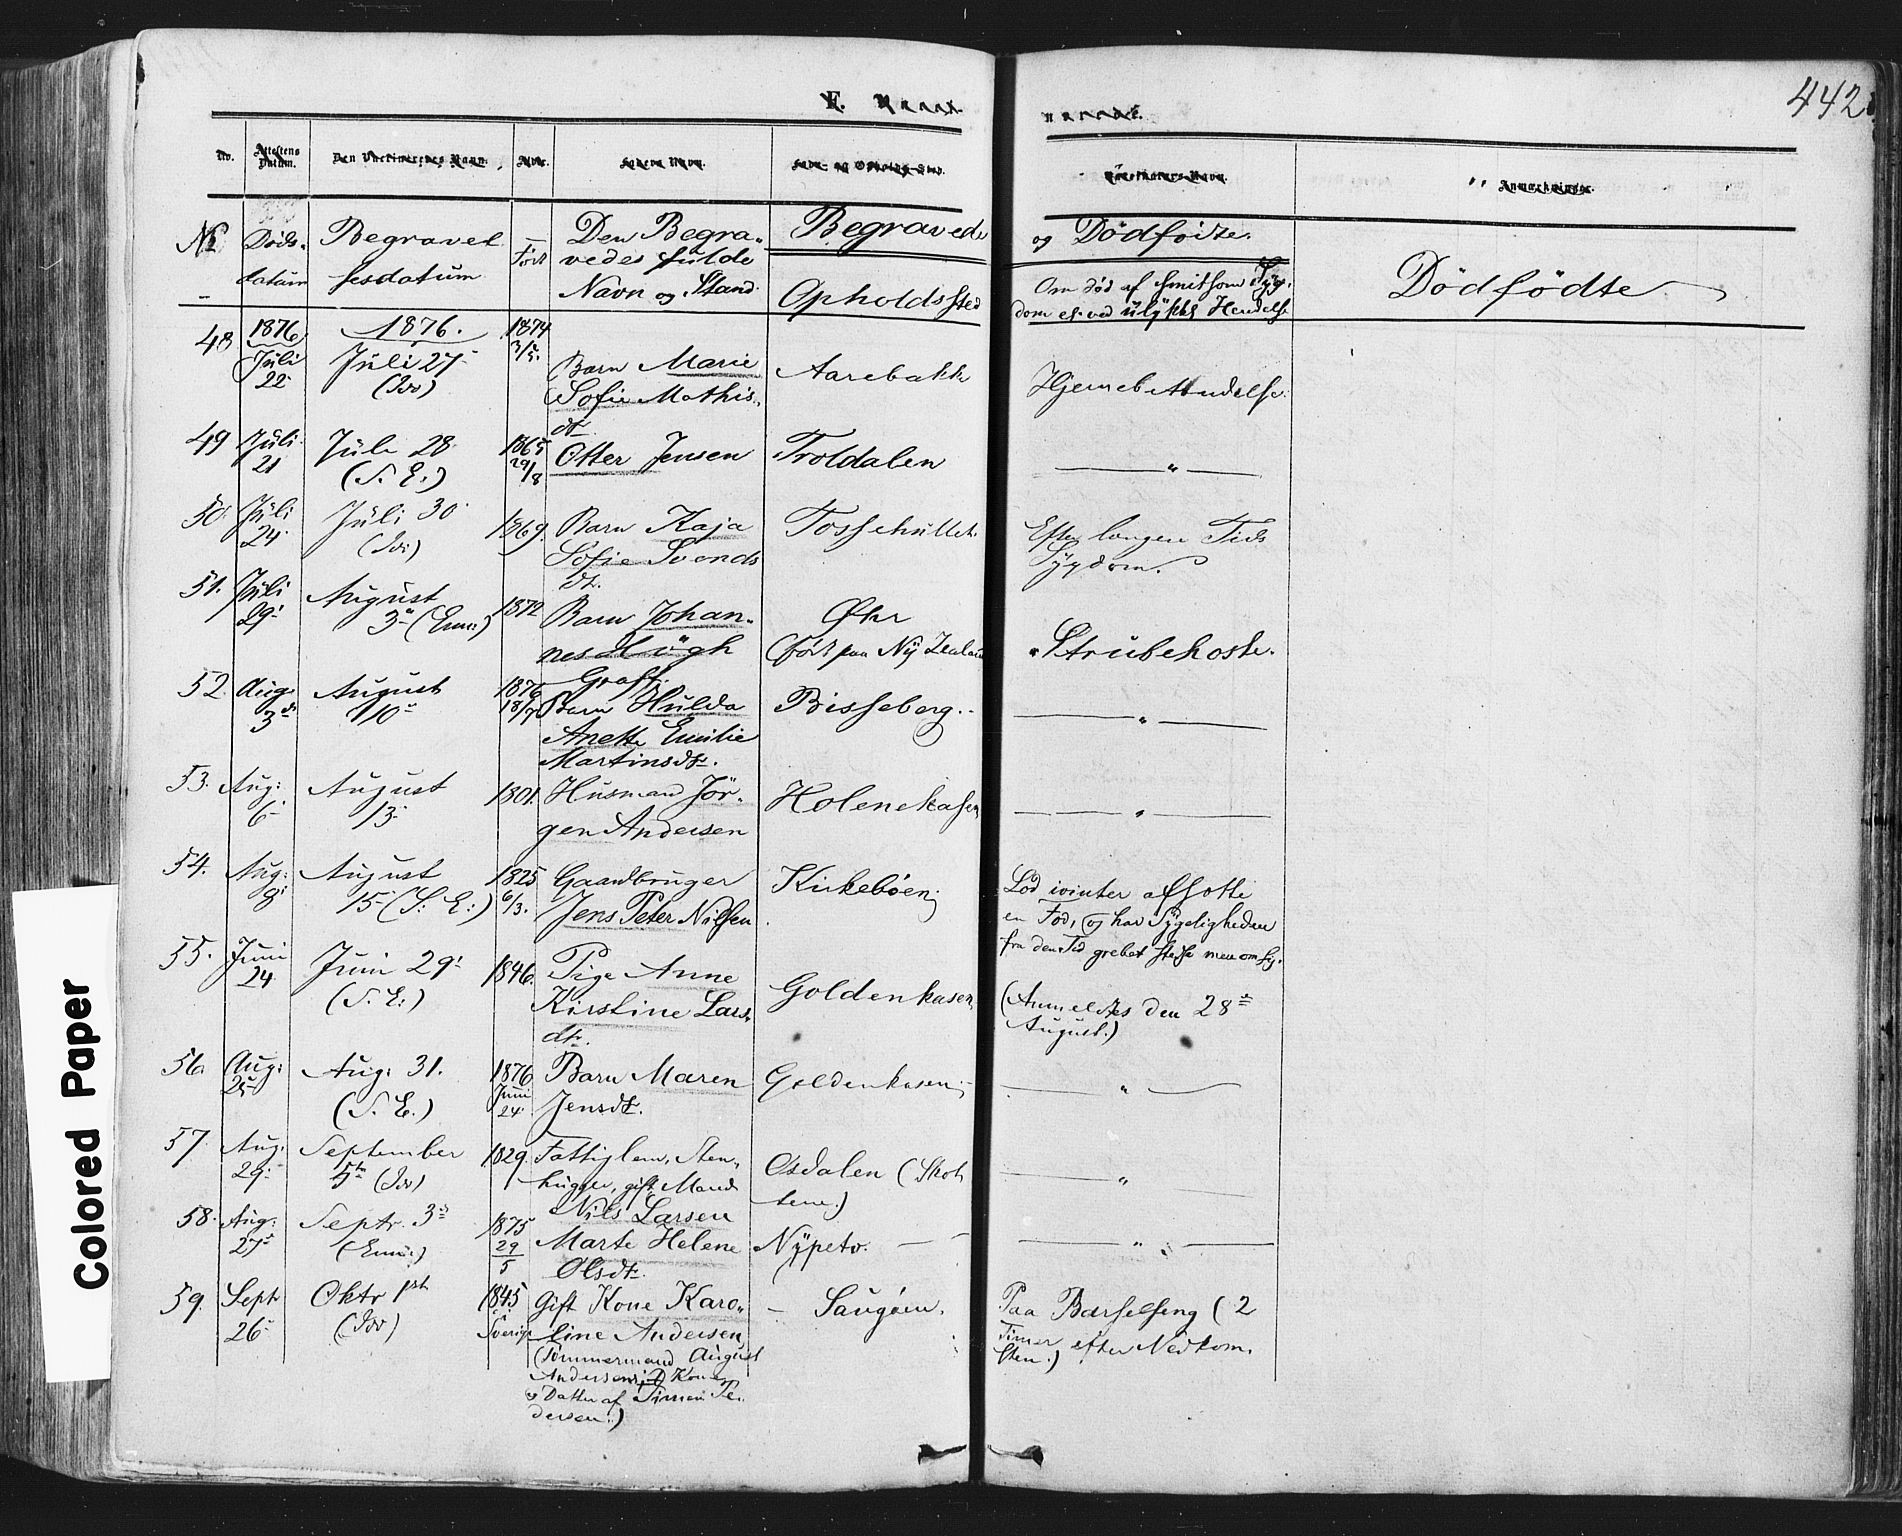 442
No.
Attestens
Datum.
Den Vaccineredes Navn.
Alder.
Faders Navn.
Begravede
og Dødfødte.
Nr
Døds-
datum
Begravel
sesdatum
Født
Den Begra-
vedes fulde
Navn og Stand
Opholdssted
Om død af smitsom Syg-
dom el. ved ulykkl Hendelse
Dødfødte
48
1876
Juli
22
1876.
Juli 27
(Idd)
1874
3/5.
Barn Marie
Sofie Mathis-
dt.
Aarebakke
Hjernebetændelse.
49
Juli
21
Juli 28
(S. E.)
1865
29/8
Otter Jensen
Troldalen
— " —
50.
Juli
24
Juli 30
(Idd)
1869.
Barn Kaja
Sofie Svends
dt.
Tossehullet.
Efter langere Tids
Sygdom.
51.
Juli
29
August
3 (Enn:)
1872
Barn Johan-
nes Høgh
Graff.
Øhr
(født paa Ny Zealand
Strubehoste.
52.
Aug:
3d
August
10
1876
18/7
Barn Hulda
Anette Emilie
Martinsdt.
Bisseberg.
— " —
53.
Aug:
6
August
13
1801.
Husmand Jør-
gen Andersen
Holenekasen
— " —
54.
Aug:
8
August
15 (S: E:)
1825
6/3.
Gaardbruger
Jens Peter Nilsen
Kirkebøen
Lod ivinter afsætte
en Fod, og har Sygeligheden
fra den Tid grebet stedse mere om sig.
55.
Juni
24
Juni 29
(S. E:)
1846.
Pige Anne
Kirstine Lars-
dt.
Goldenkasen
(Anmeldtes den 28
August.)
56.
Aug:
25
Aug: 31.
(S. E.)
1876
Juni
24
Barn Maren
Jensdt.
Goldenkasen
— " —
57.
Aug:
29
September
5te (Idd)
1829.
Fattiglem, Sten-
hugger, gift Mand
Nils Larsen
Osdalen (Skot
tene.)
— " —
58.
Aug:
27
Septr. 3
(Enn:)
1875
29
5
Marte Helene
Olsdt.
Nypetv.
— " —
59.
Sept
26
Oktr 1st
(Idd)
1845
Sverige
Gift Kone Karo-
line Andersen
(Tømmermand August
Andersens Kone
Datter af Simen Pe-
dersen.)
Saugøen.
Paa Barselseng (2
Timer efter Nedkom-
sten.)
Colored Paper